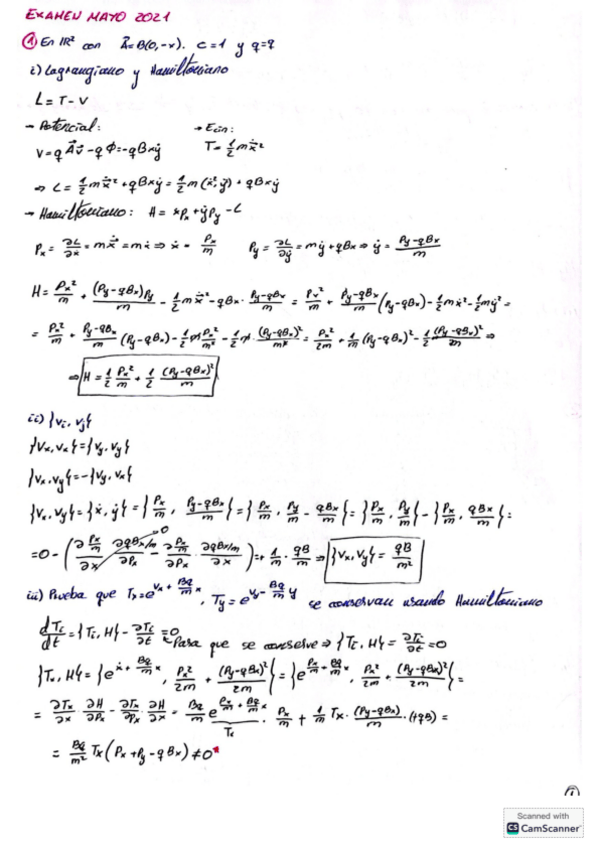 EXAMEN MAYO 2021
① En ℝ² con Ā=B(0,-x). c=1 y q=q
i) Lagrangiano y Hamiltoniano
L = T - V
→ Potencial: → Ecin:
V = q A⃗v⃗ - qΦ = -qBxẏ T = 1/2 mẋ⃗²
⇒ L = 1/2 mẋ⃗² + qBxẏ = 1/2 m(ẋ²,ẏ²) + qBxẏ
→ Hamiltoniano: H = ẋpx + ẏpy - L
Px = ∂L/∂ẋ = mẋ⃗ = mẋ ⇒ ẋ = Px/m Py = ∂L/∂ẏ = mẏ + qBx ⇒ ẏ = (Py-qBx)/m
H = Px²/m + (Py-qBx)Py/m - 1/2 mẋ⃗² - qBx · (Py-qBx)/m = Px²/m + (Py-qBx)/m (Py-qBx) - 1/2 mẋ² - 1/2 mẏ² =
= Px²/m + (Py-qBx)/m (Py-qBx) - 1/2 m Px²/m² - 1/2 m · (Py-qBx)²/m² = Px²/2m + 1/m (Py-qBx)² - 1/2 (Py-qBx)²/m ⇒
⇒ H = 1/2 Px²/m + 1/2 (Py-qBx)²/m
ii) {vi, vj}
{Vx, Vx} = {Vy, Vy}
{Vx, Vy} = -{Vy, Vx}
{Vx, Vy} = {ẋ, ẏ} = {Px/m, (Py-qBx)/m} = {Px/m, Py/m - qBx/m} = {Px/m, Py/m} - {Px/m, qBx/m} =
= 0 - (∂Px/m/∂x ∂qBx/m/∂Px - ∂Px/m/∂Px · ∂qBx/m/∂x) = + 1/m · qB/m ⇒ {Vx, Vy} = qB/m²
iii) Prueba que Tx = e^(Vx + Bq/m x), Ty = e^(Vy - Bq/m y) se conservan usando Hamiltoniano
dTi/dt = {Ti, H} - ∂Ti/∂t = 0 Para que se conserve ⇒ {Ti, H} = ∂Ti/∂t = 0
{Tx, H} = {e^(ẋ + Bq/m x), Px²/2m + (Py-qBx)²/2m} = {e^(Px/m + Bq/m x), Px²/2m + (Py-qBx)²/2m} =
= ∂Tx/∂x ∂H/∂Px - ∂Tx/∂Px ∂H/∂x = Bq/m e^(Px/m + Bq/m x) · Px/m + 1/m Tx · (Py-qBx)/m · (+qB) =
Tx
= Bq/m² Tx (Px + Py - qBx) ≠ 0*
①
Scanned with
CS CamScanner